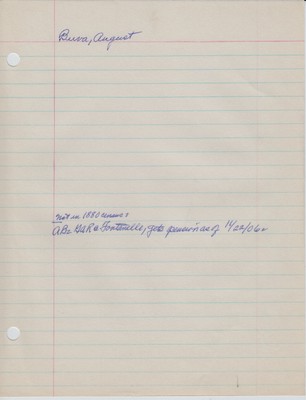 Buva, August
not in 1880 census
GAR Fontenelle, gets pension as of